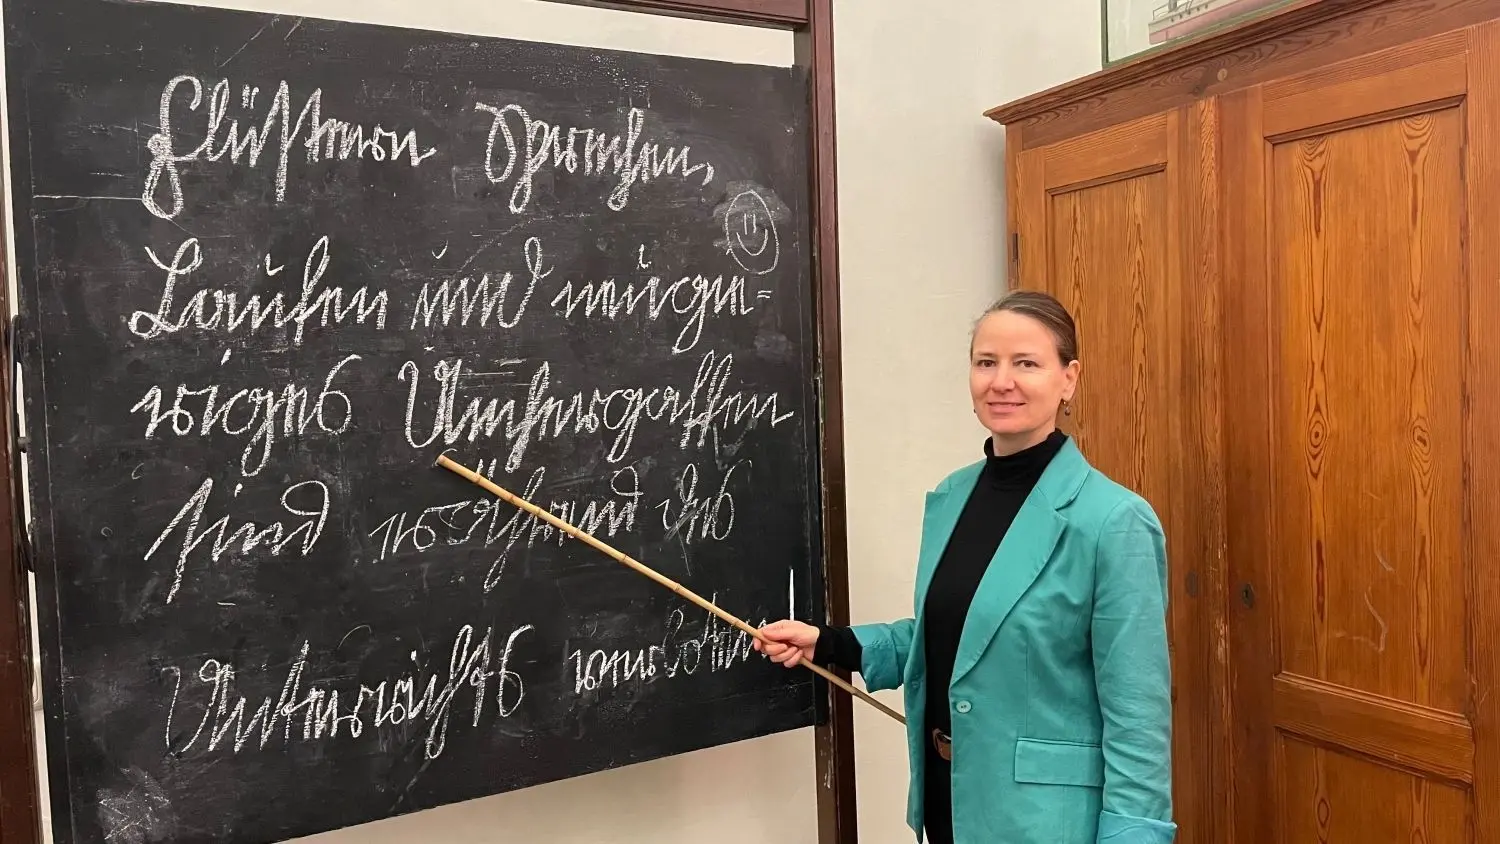 Flüstern Sprechen,
Laufen und neugie=
riges Umhergaffen
sind während des
Unterrichts verboten